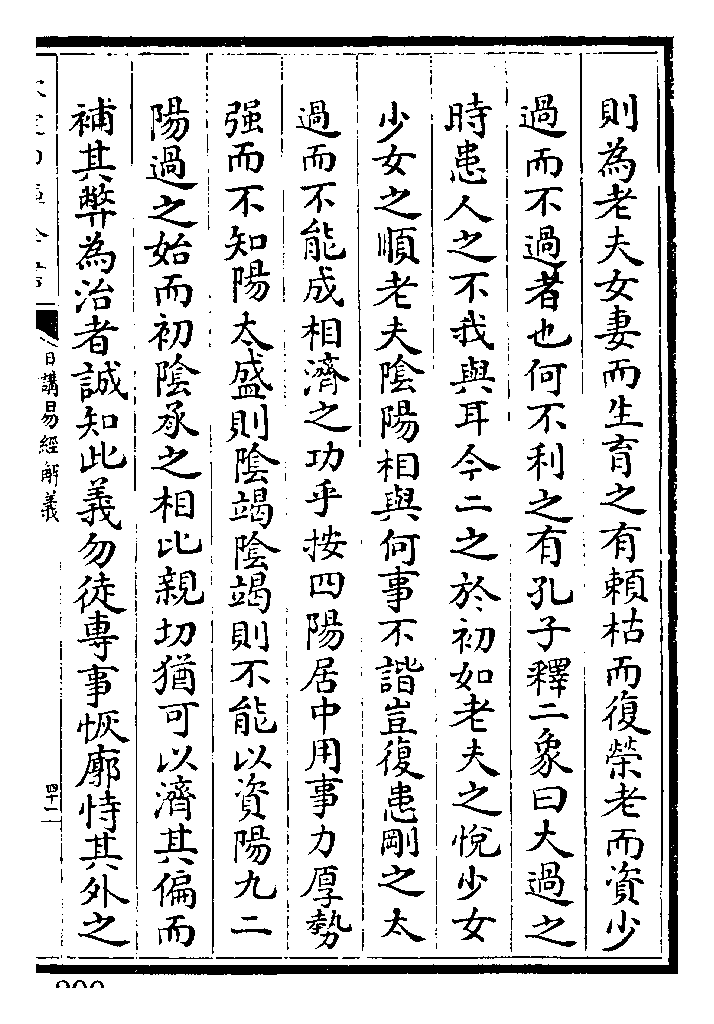 則為老夫女妻而生育之有賴枯而復榮老而資少
過而不過者也何不利之有孔子釋二象曰大過之
時患人之不我與耳今二之於初如老夫之悅少女
少女之順老夫陰陽相與何事不諧豈復患剛之太
過而不能成相濟之功乎按四陽居中用事力厚勢
强而不知陽太盛則陰竭陰竭則不能以資陽九二
陽過之始而初陰承之相比親切猶可以濟其偏而
補其弊為治者誠知此義勿徒專事恢廓恃其外之
日講易經解義
四十一